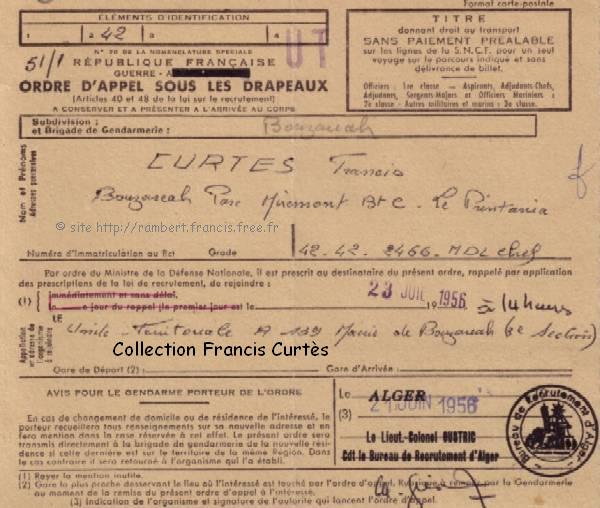 Format carte-postale
ÉLÉMENTS D'IDENTIFICATION
1 2 42 3 4
UT
N° 70 DE LA NOMENCLATURE SPECIALE
51/1 RÉPUBLIQUE FRANÇAISE
GUERRE - A
ORDRE D'APPEL SOUS LES DRAPEAUX
(Articles 40 et 48 de la loi sur le recrutement)
A CONSERVER ET A PRÉSENTER A L'ARRIVÉE AU CORPS
TITRE
donnant droit au transport
SANS PAIEMENT PRÉALABLE
sur les lignes de la S.N.C.F. pour un seul
voyage sur le parcours indiqué et sans
délivrance de billet.
Officiers : 1re classe — Aspirants, Adjudants-Chefs,
Adjudants, Sergents-Majors et Officiers Mariniers :
2e classe - Autres militaires et marins : 3e classe.
Subdivision :
et Brigade de Gendarmerie : Bouzareah
Nom et Prénoms
Adresses successives
CURTES Francis
Bouzareah Parc Miremont Bt C. Le Printania
© site http://rambert.francis.free.fr
Numéro d'immatriculation au Rct Grade 42.42. 2466. MDL chef
Par ordre du Ministre de la Défense Nationale, il est prescrit au destinataire du présent ordre, rappelé par application
des prescriptions de la loi de recrutement, de rejoindre :
(1) immédiatement et sans délai,
le jour du rappel (le premier jour est le 23 JUIL 1956 à 14 heures
LE
Unité Territoriale A 139 Mairie de Bouzareah (2e Section)
Collection Francis Curtès
Gare de Départ (2) : Gare d'Arrivée :
AVIS POUR LE GENDARME PORTEUR DE L'ORDRE
En cas de changement de domicile ou de résidence de l'intéressé, le
porteur recueillera tous renseignements sur sa nouvelle adresse et en
fera mention dans la case réservée à cet effet. Le présent ordre sera
transmis directement à la brigade de gendarmerie de la nouvelle rési-
dence si celle dernière est sur le territoire de la même Région. Dans
le cas contraire il sera retourné à l'organisme qui l'a établi.
A ALGER
Le 21 JUIN 1956
(3)
Le Lieut.-Colonel OUSTRIC
Cdt le Bureau de Recrutement d'Alger
Bureau de Recrutement d'Alger
(1) Rayer la mention inutile.
(2) Gare la plus proche desservant le lieu où l'intéressé est touché par l'ordre d'appel. Rubrique à remplir par la Gendarmerie
au moment de la remise du présent ordre d'appel à l'intéressé.
(3) Indication de l'organisme et signature de l'autorité qui lancent l'ordre d'appel.